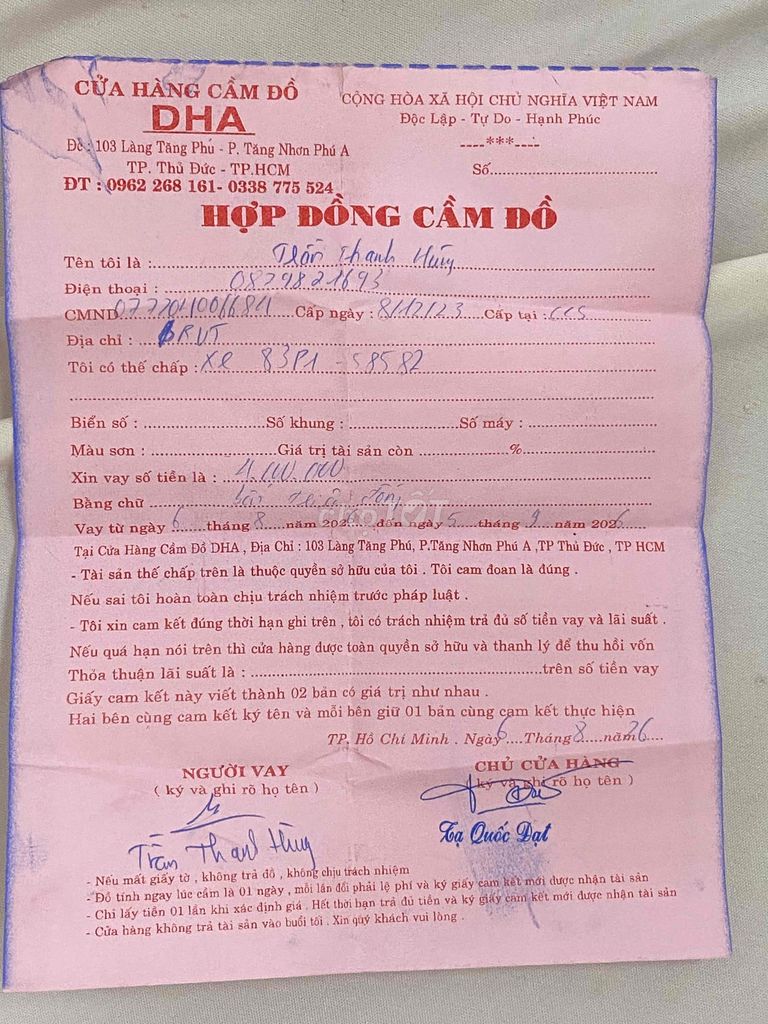 CỬA HÀNG CẦM ĐỒ
DHA
Đc : 103 Làng Tăng Phú - P. Tăng Nhơn Phú A
TP. Thủ Đức - TP.HCM
ĐT : 0962 268 161- 0338 775 524
CỘNG HÒA XÃ HỘI CHỦ NGHĨA VIỆT NAM
Độc Lập - Tự Do - Hạnh Phúc
----***----
Số
HỢP ĐỒNG CẦM ĐỒ
Tên tôi là : Trần Thanh Hùng
Điện thoại : 0879821693
CMND Cấp ngày : 8/12/23 Cấp tại : CCS
Địa chỉ : BRVT
Tôi có thế chấp : Xe 83P1 - 58582
Biển số : Số khung : Số máy :
Màu sơn : Giá trị tài sản còn %
Xin vay số tiền là : 4.000.000
Bằng chữ
Vay từ ngày 6 tháng 8 năm 202 đến ngày 5 tháng 9 năm 2026
Tại Cửa Hàng Cầm Đồ DHA , Địa Chỉ : 103 Làng Tăng Phú, P.Tăng Nhơn Phú A ,TP Thủ Đức , TP HCM
- Tài sản thế chấp trên là thuộc quyền sở hữu của tôi . Tôi cam đoan là đúng .
Nếu sai tôi hoàn toàn chịu trách nhiệm trước pháp luật .
- Tôi xin cam kết đúng thời hạn ghi trên , tôi có trách nhiệm trả đủ số tiền vay và lãi suất .
Nếu quá hạn nói trên thì cửa hàng được toàn quyền sở hữu và thanh lý để thu hồi vốn
Thỏa thuận lãi suất là : trên số tiền vay
Giấy cam kết này viết thành 02 bản có giá trị như nhau .
Hai bên cùng cam kết ký tên và mỗi bên giữ 01 bản cùng cam kết thực hiện
TP. Hồ Chí Minh . Ngày 6 Tháng 8 năm 26
NGƯỜI VAY
( ký và ghi rõ họ tên )
Trần Thanh Hùng
CHỦ CỬA HÀNG
( ký và ghi rõ họ tên )
Tạ Quốc Đạt
- Nếu mất giấy tờ , không trả đồ , không chịu trách nhiệm
- Đồ tính ngay lúc cầm là 01 ngày , mỗi lần đổi phải lệ phí và ký giấy cam kết mới được nhận tài sản
- Chỉ lấy tiền 01 lần khi xác định giá . Hết thời hạn trả đủ tiền và ký giấy cam kết mới được nhận tài sản
- Cửa hàng không trả tài sản vào buổi tối . Xin quý khách vui lòng .